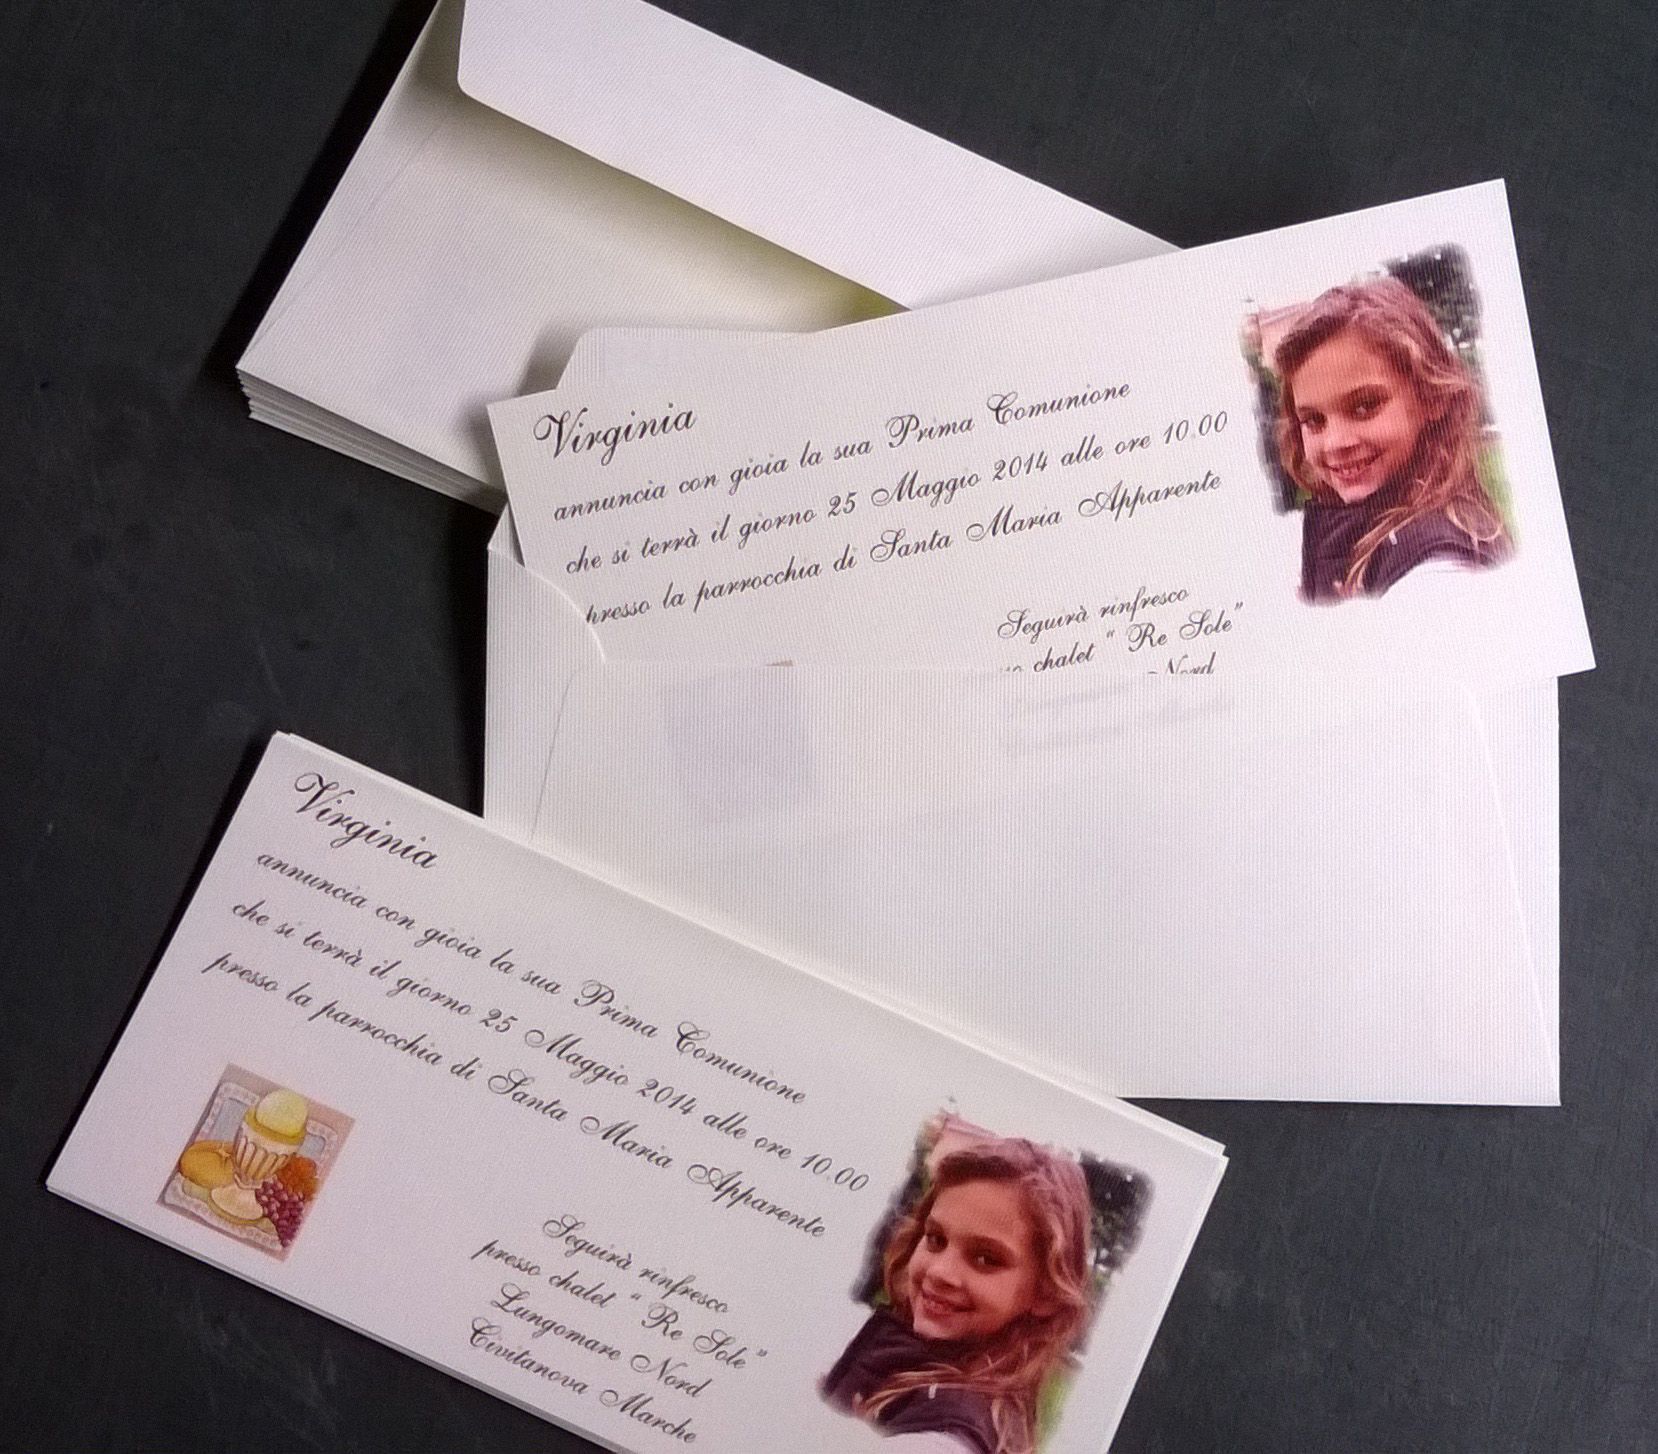 Virginia
annuncia con gioia la sua Prima Comunione
che si terrà il giorno 25 Maggio 2014 alle ore 10.00
presso la parrocchia di Santa Maria Apparente
Seguirà rinfresco
chalet “ Re Sole”
Nord
Virginia
annuncia con gioia la sua Prima Comunione
che si terrà il giorno 25 Maggio 2014 alle ore 10.00
presso la parrocchia di Santa Maria Apparente
Seguirà rinfresco
presso chalet “ Re Sole”
Lungomare Nord
Civitanova Marche